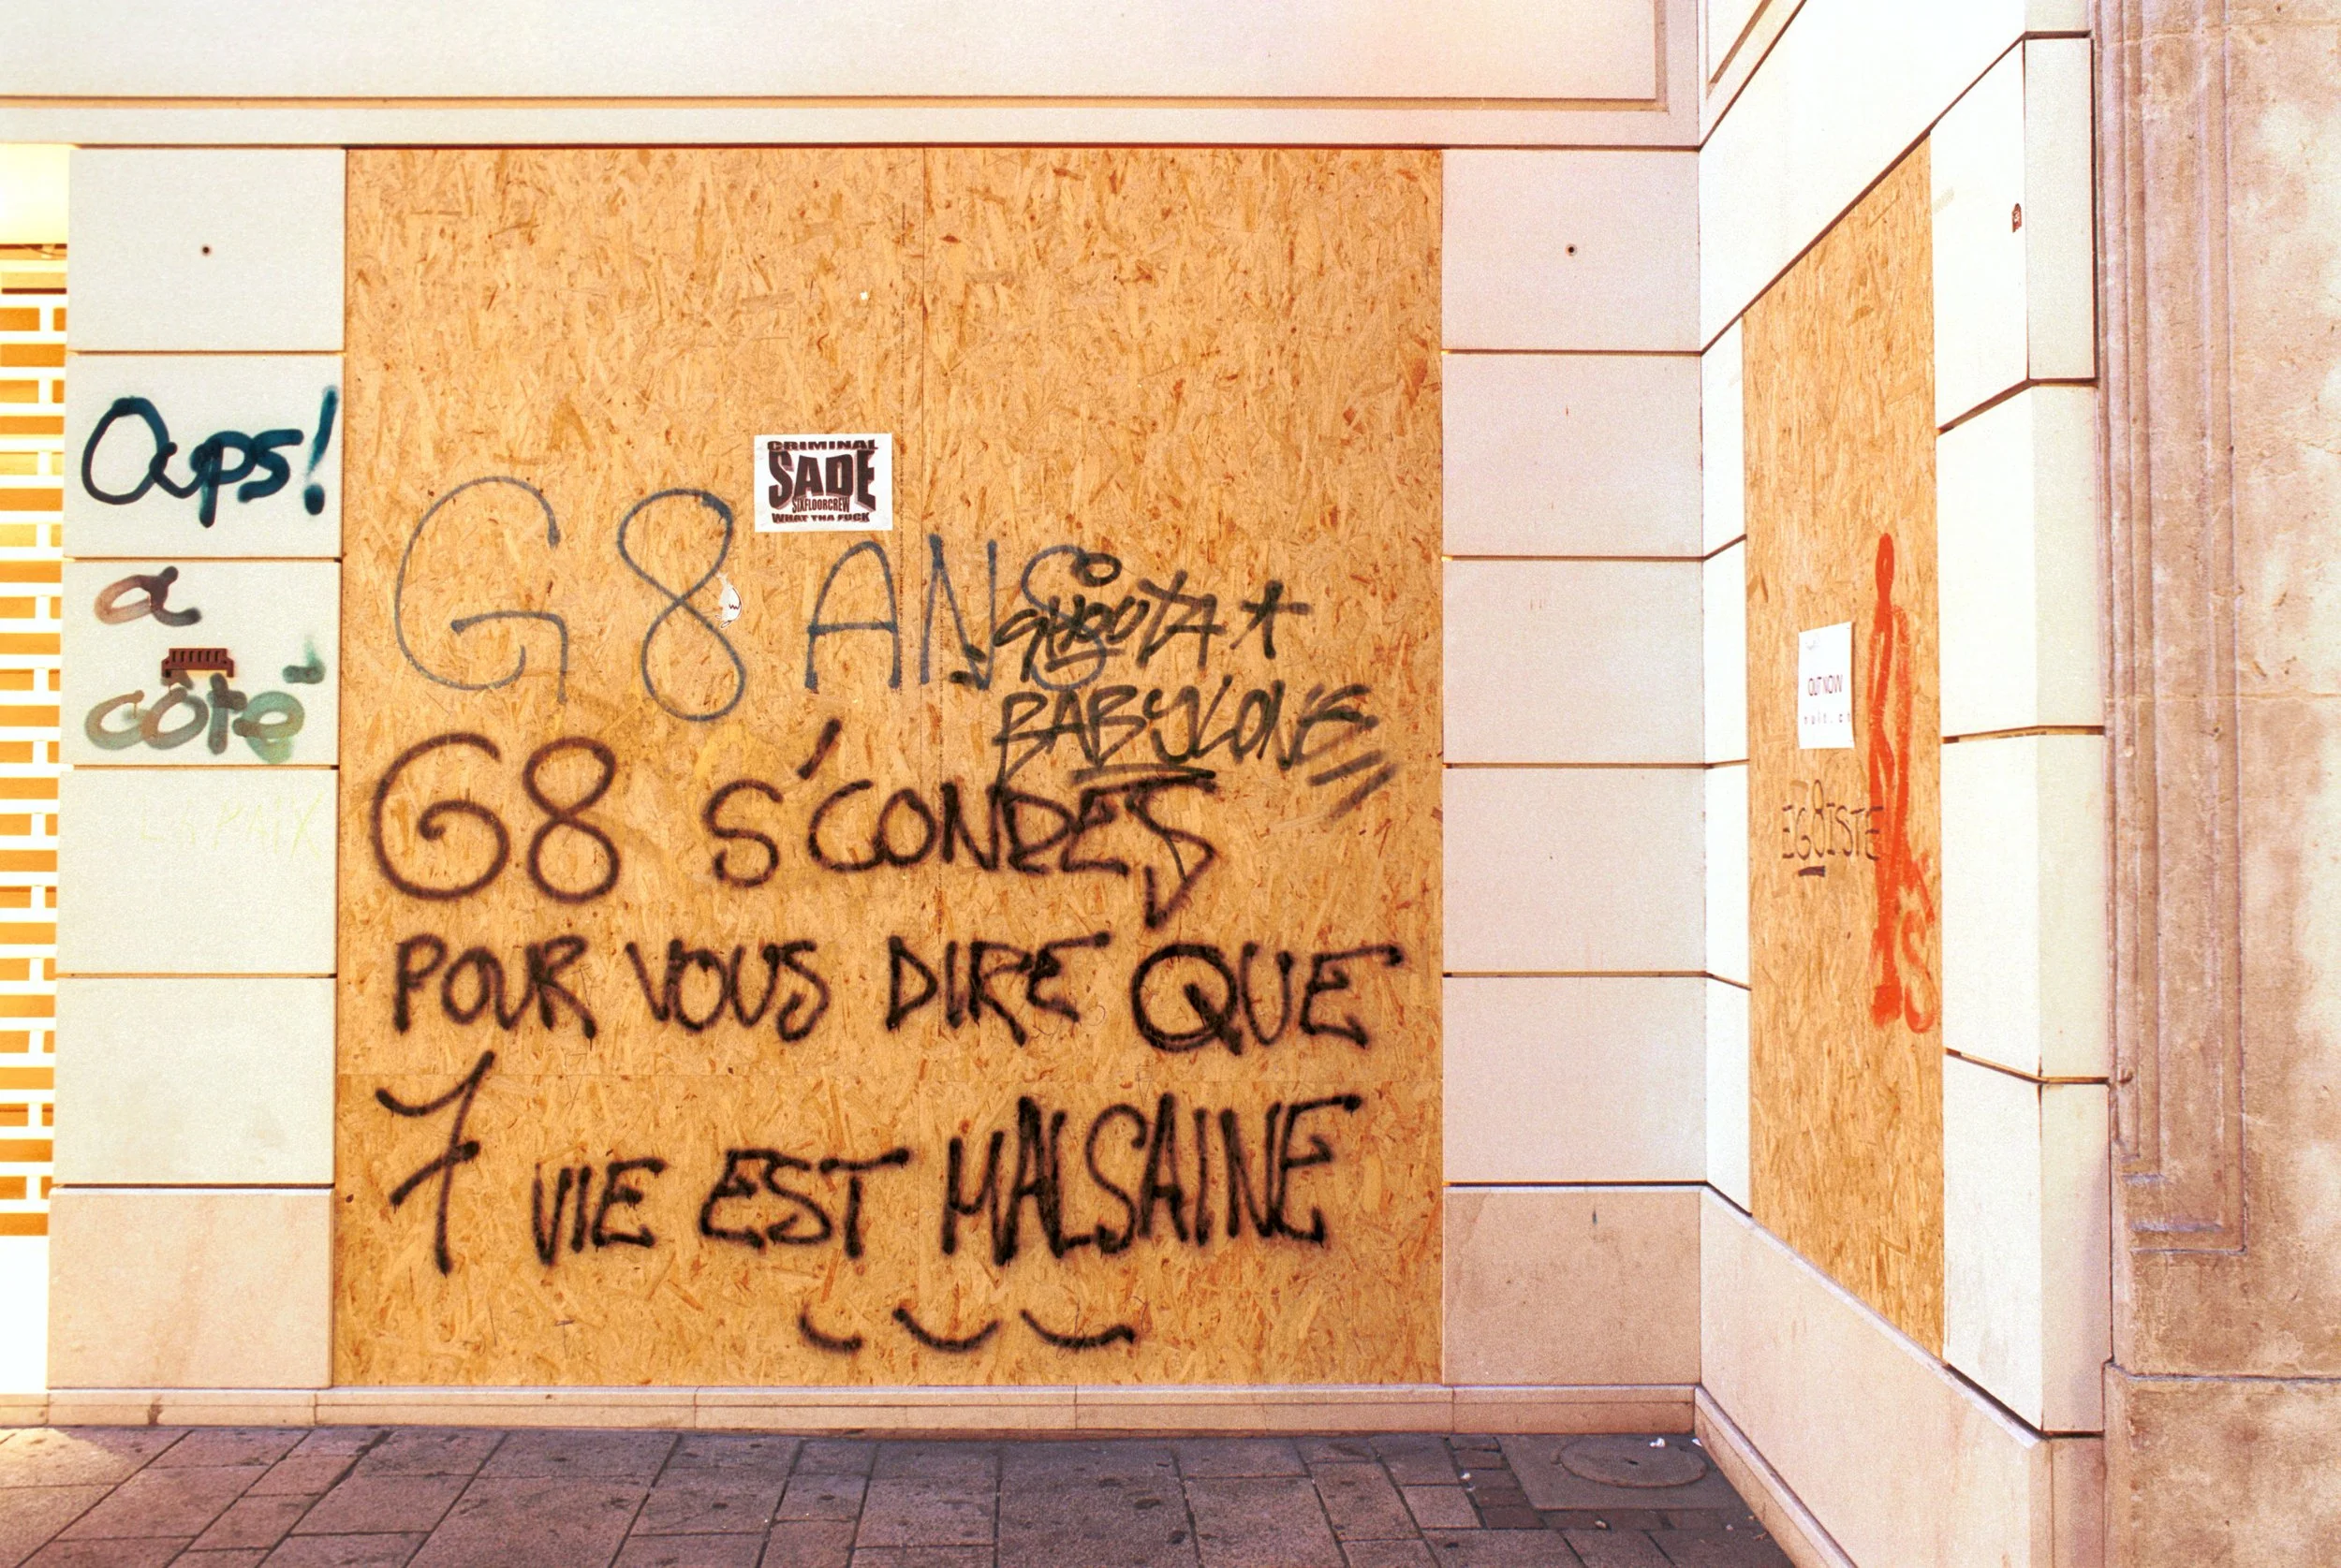 Oups!
a
côté
LA PAIX
CRIMINAL
SADE
SIXFLOORCREW
WHAT THA FUCK
G8 ANS
SHOOTA
BABYLONE
G8 S'CONDES
POUR VOUS DIRE QUE
7 VIE EST MALSAINE
OUT NOW
EG8ISTE